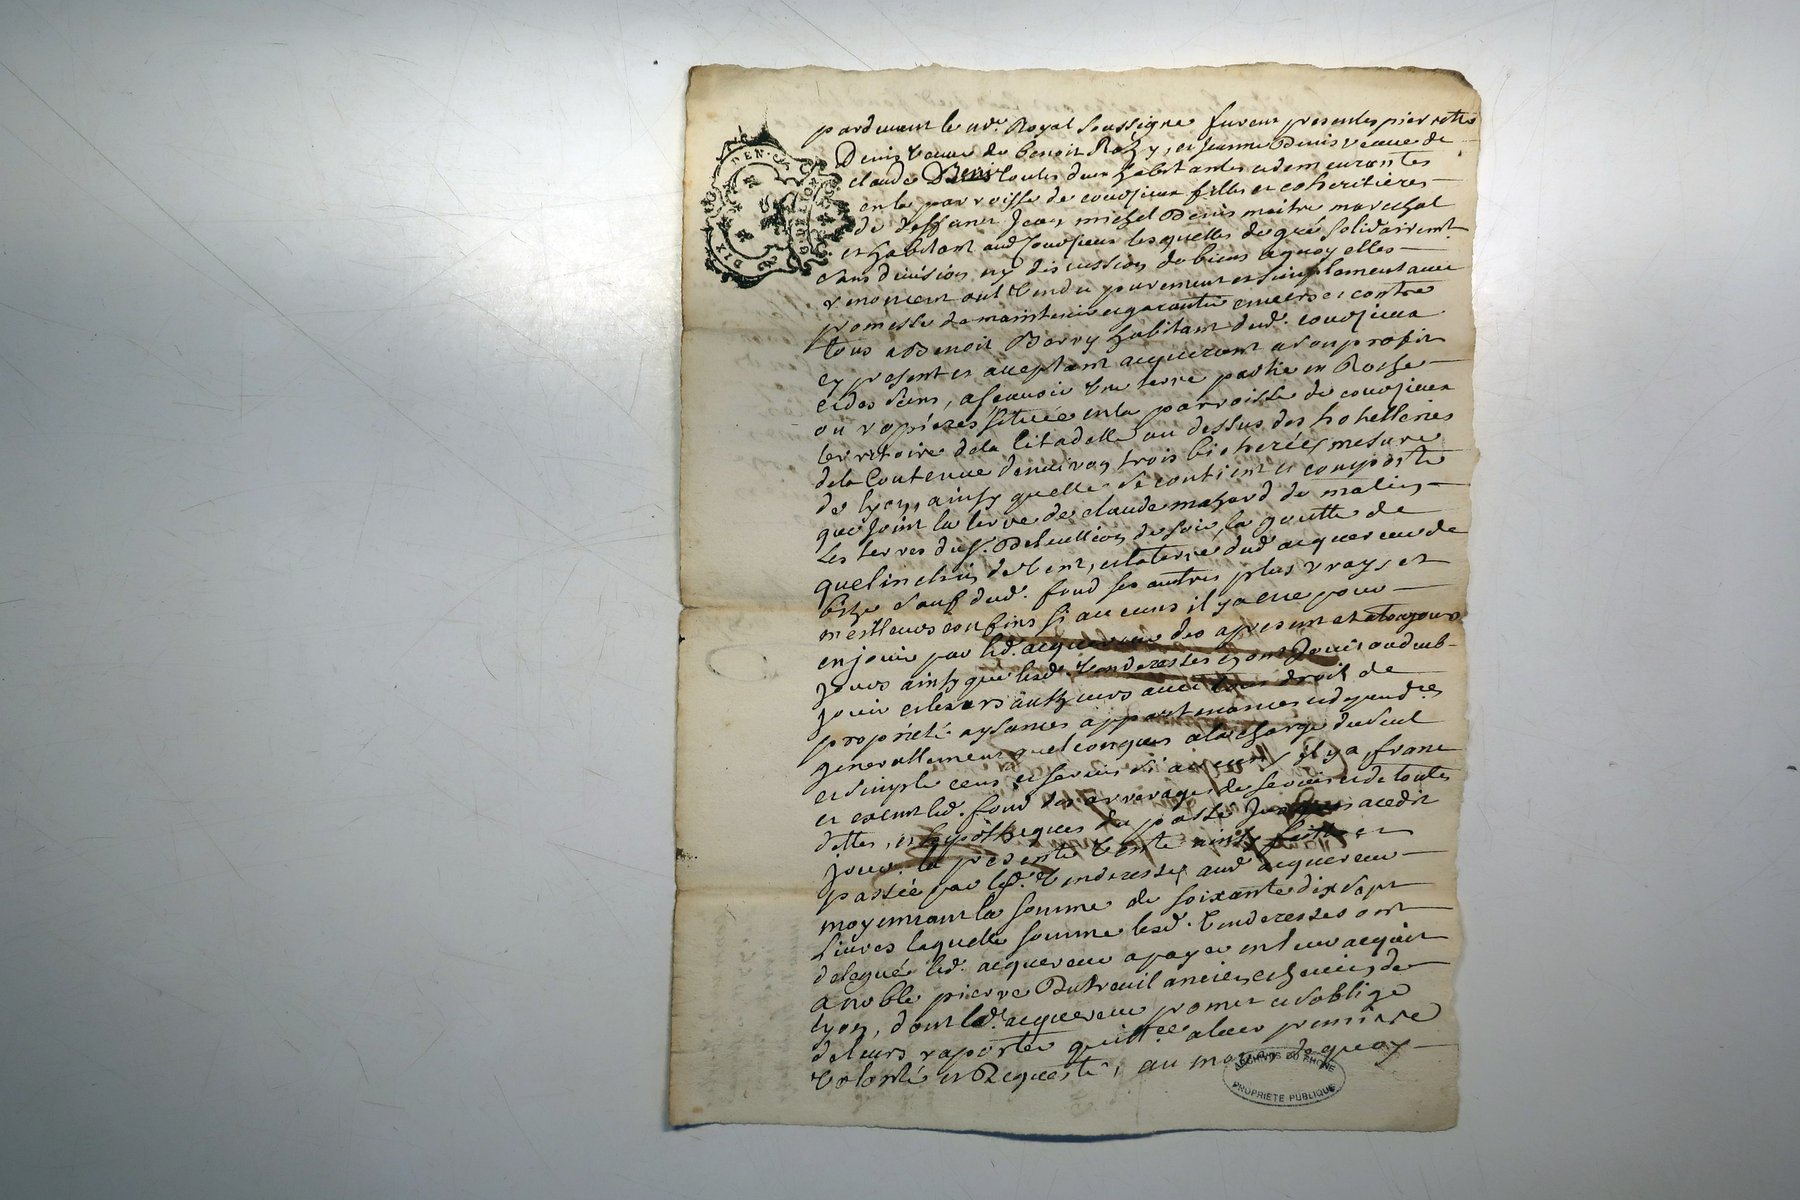 pardevant le no.re Royal Soussigné furent presentes pierrette
Denis veuve de benoit Rozy, et jeanne Denis veuve de
claude Denis toutes deux habitantes et demeurantes
en la parroisse de couzieux filles et coheritières
de deffunt Jean michel Denis maitre marechal
et habitant aud couzieux lesquelles de gré solidairemt
sans division ny discussion de biens a quoy elles
renoncent ont vendu purement et simplement avec
promesse de maintenir et garantir envers et contre
tous a Benoit Borry habitant dud. couzieux
cy present et acceptant acquerant a son profit
et des siens, a scavoir une terre partie en Roche
ou rapieres scituée en la parroisse de couzieux
territoire de la Citadelle au dessus des hotelleries
de la Contenue denviron trois bicherées mesure
de lyon, ainsy quelle se contient et comporte
que joint la terre de claude mazard de matin
Les terres du s. de soir la goutte de
de vent, et la terre dud acquereur de
bize sauf dud. fond ses autres plus vrays et
meilleurs confins si aucuns il y a cue pour
en jouir par led. acquereur des apresent et atoujours
jours ainsy que lesd. vanderesses en ont Joui ou deub
jouir et leurs autheurs avec tous droit de
propriété aysances appartenances et dependces
generallement quelconques a la charge du seul
et simple cens et servis si aucuns il y a, franc
et exemt led. fond des arrerages de servis et de toutes
dettes, et hypotheques du passé Jusques a cedit
jour. la presente vente ainsy faitte et
passée par lesd. venderesses aud acquereur
moyennant la somme de soixante dix sept
Livres laquelle somme lesd. venderesses ont
delegué led. acquereur a payer en leur acquit
a noble pierre Dutreuil ancien echevin de
lyon, dont led. acquereur promet et soblige
de leurs raporter quittce a leur premiere
volonté et Requeste, au moyen de quoy
DIX DEN.
G. DE LION
ARCHIVES DU RHONE
PROPRIETE PUBLIQUE